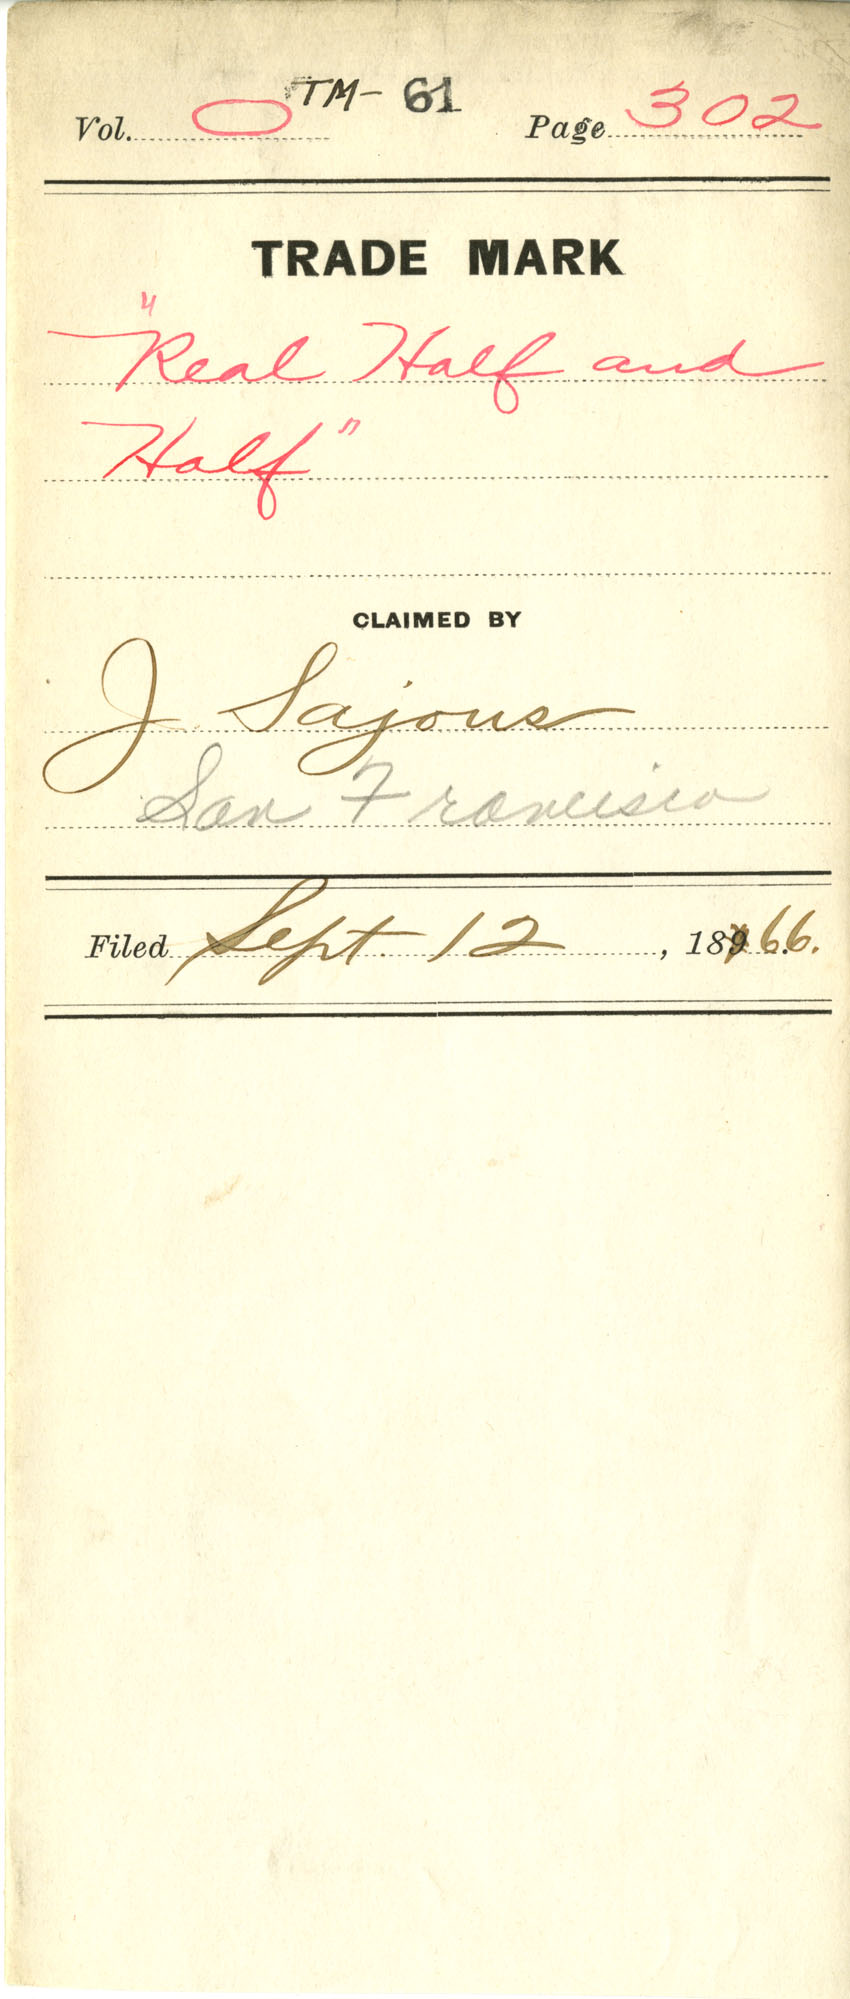 TM- 61
Vol. 0 Page 302
TRADE MARK
"Real Half and
Half"
CLAIMED BY
J. Sajous
San Francisco
Filed Sept. 12, 1866.